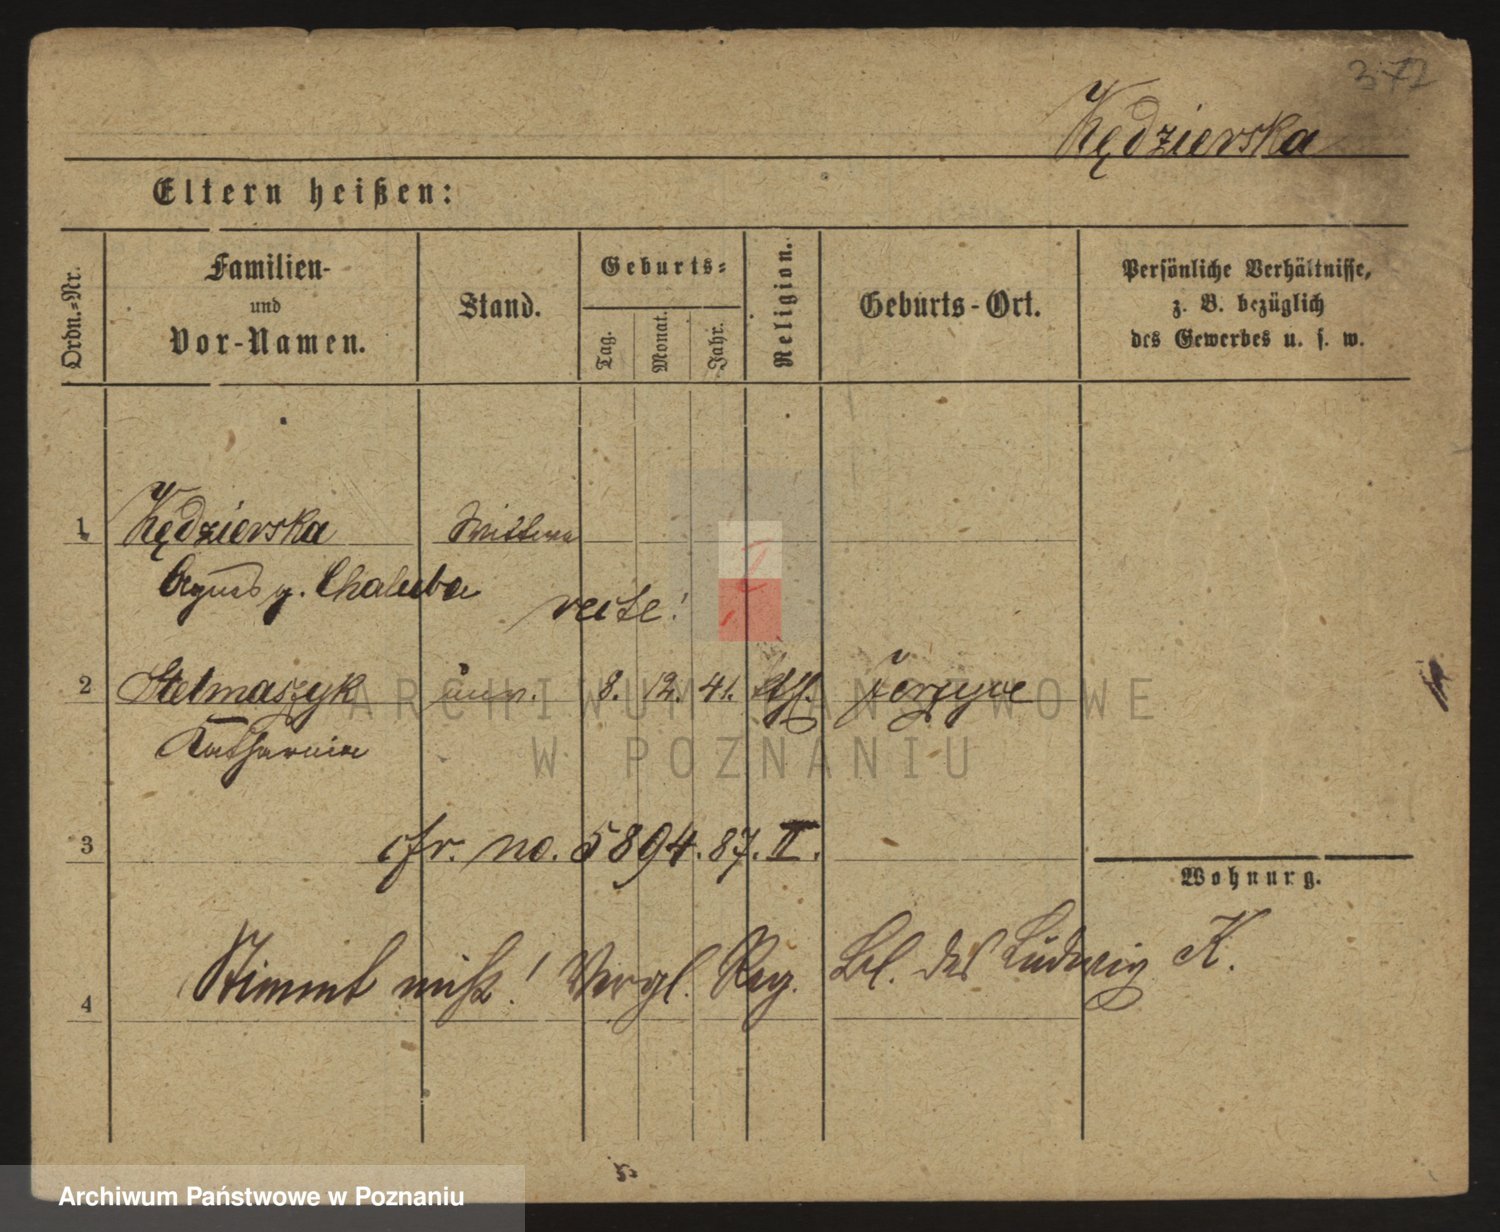 372
Kędzierska
Eltern heißen:
Ordn.-Nr.
Familien-
und
Vor-Namen.
Stand.
Geburts-
Tag.
Monat.
Jahr.
Religion.
Geburts-Ort.
Persönliche Verhältnisse,
z. B. bezüglich
des Gewerbes u. s. w.
1 Kędzierska Wittwe
Agnes g. Chaluba
recte!
2 Stelmaszyk unv. 8. 12. 41. kth. Jerzyce
Katharina
3 cfr. no. 5894. 87. II.
Wohnung.
4 Stimmt nicht! Vergl. Reg. Bl. des Ludwig K.
ARCHIWUM PAŃSTWOWE
W POZNANIU
Archiwum Państwowe w Poznaniu